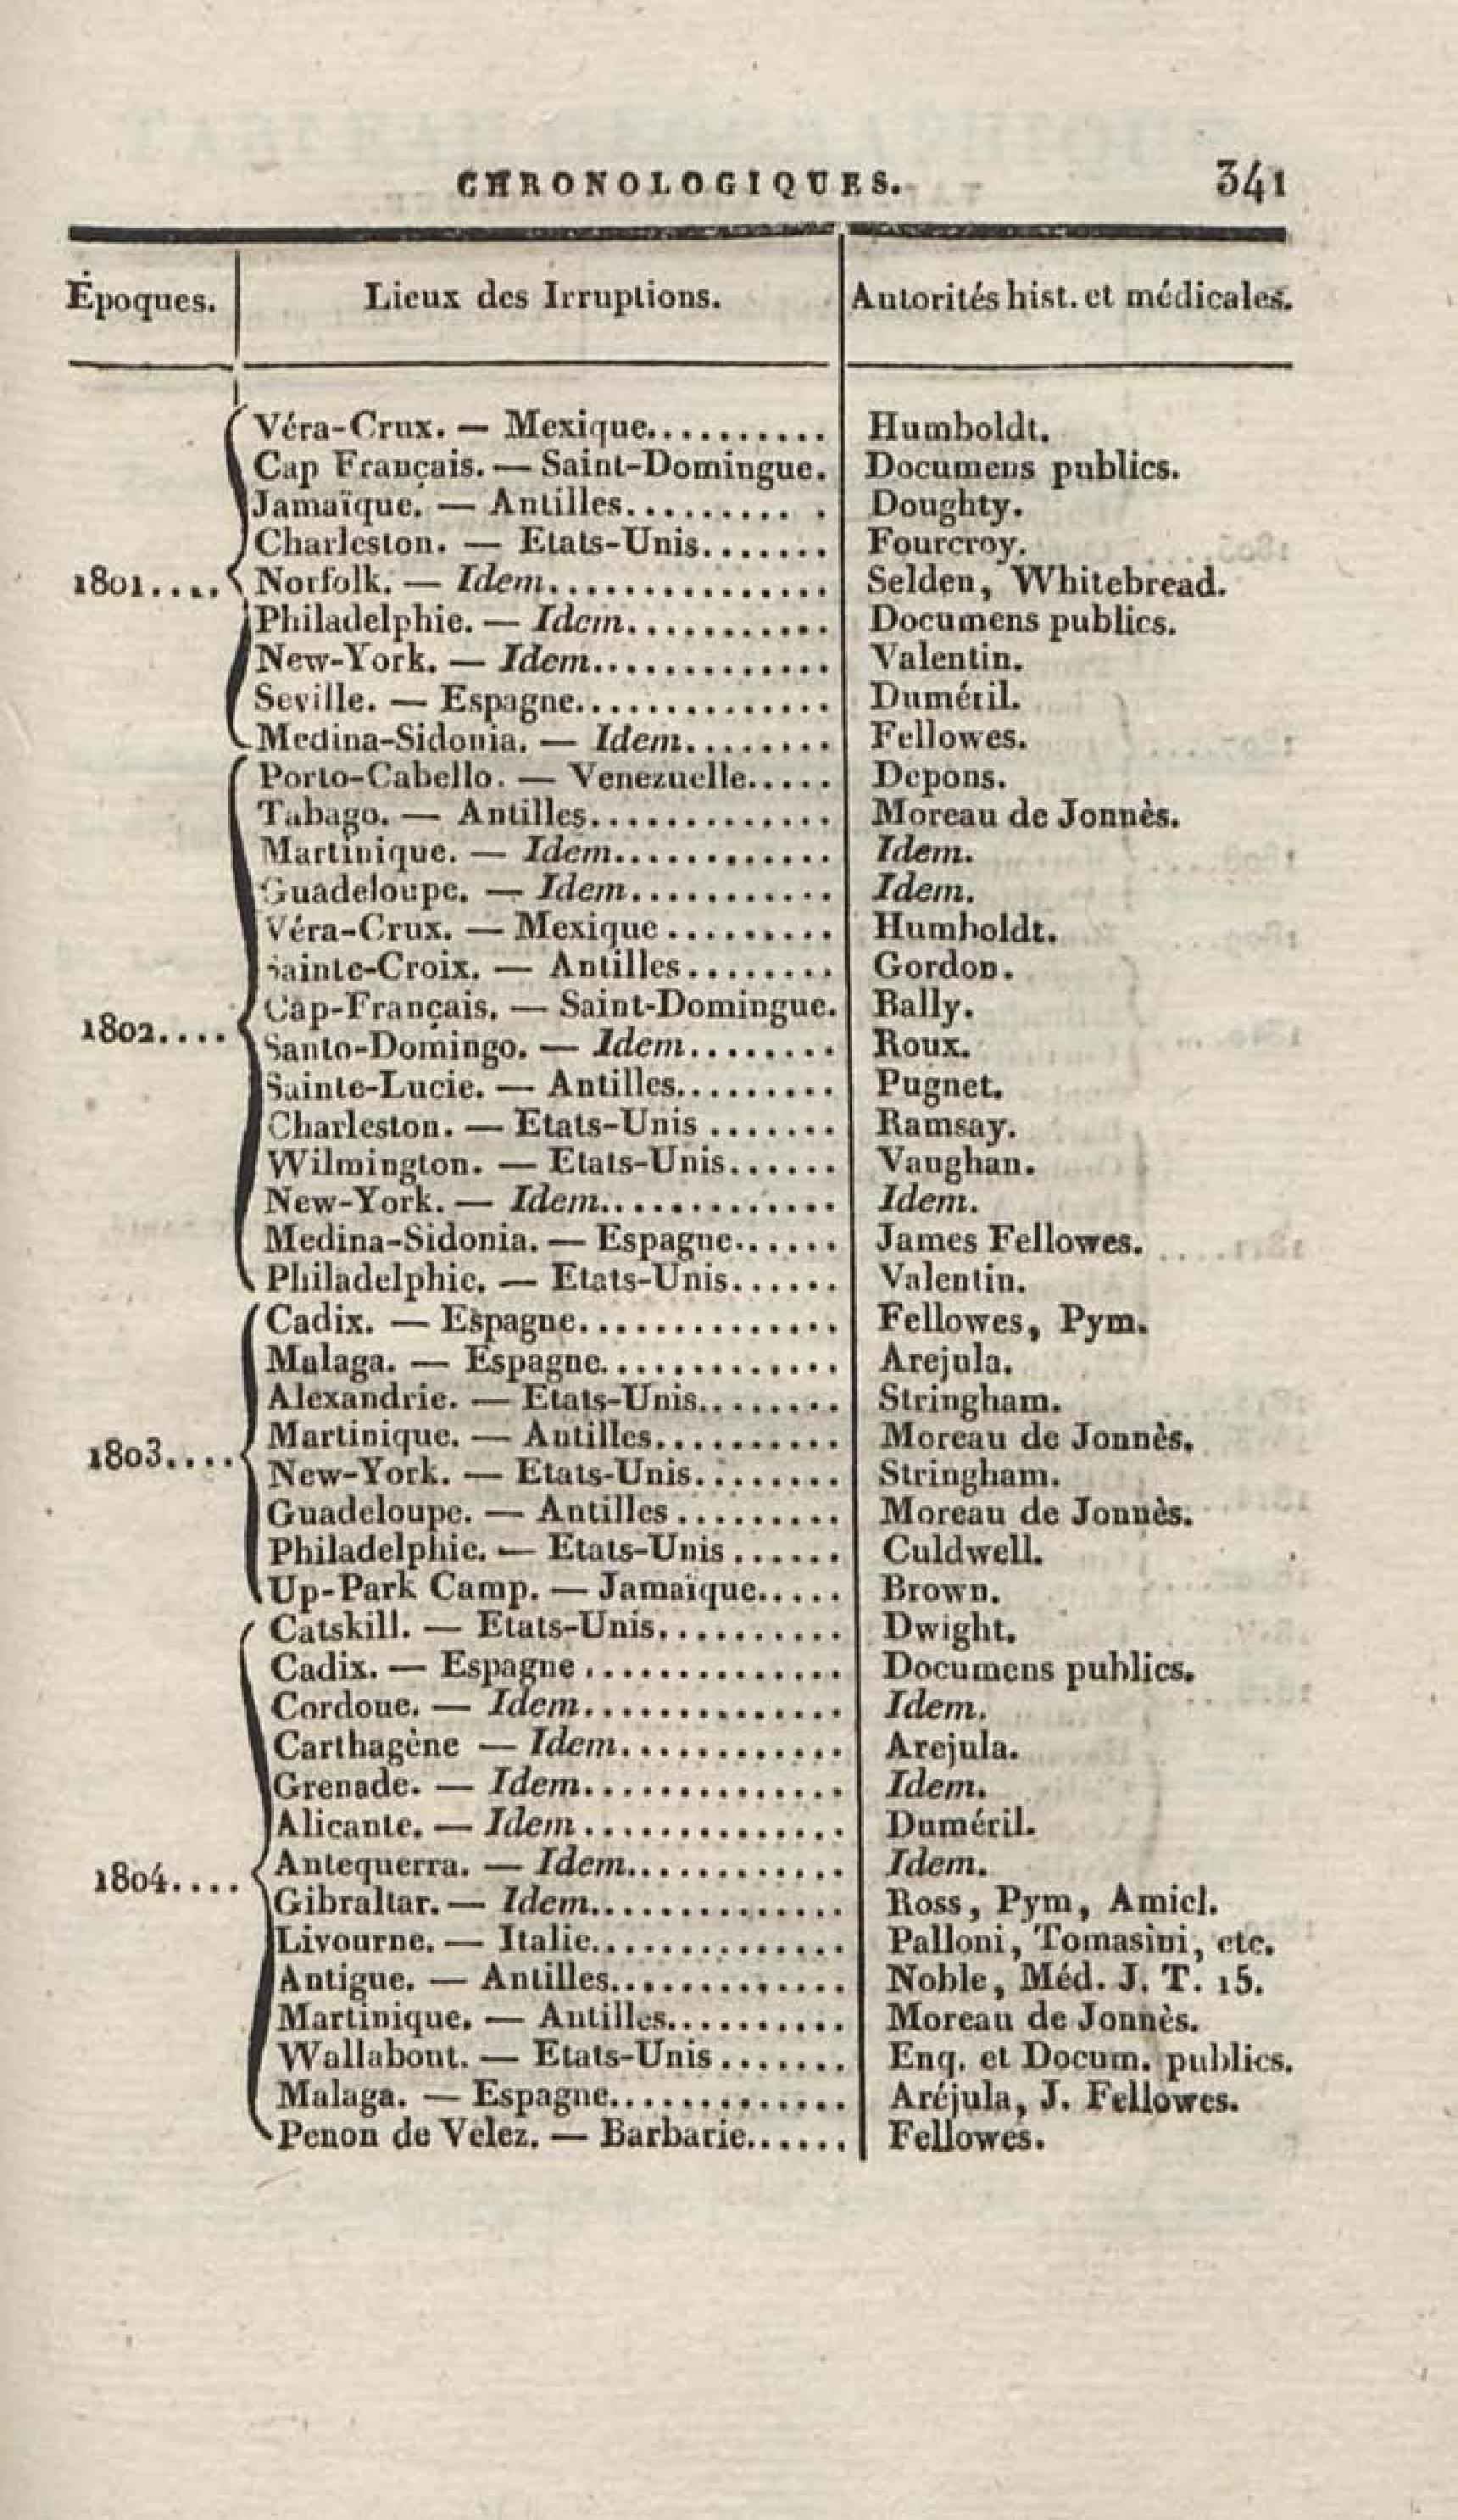 CHRONOLOGIQUES. 341
Époques. Lieux des Irruptions. Autorités hist. et médicales.
Véra-Crux. — Mexique.......... Humboldt.
Cap Français. — Saint-Domingue. Documens publics.
Jamaïque. — Antilles.......... Doughty.
Charleston. — Etats-Unis....... Fourcroy.
1801.... Norfolk. — Idem............... Selden, Whitebread.
Philadelphie. — Idem........... Documens publics.
New-York. — Idem............. Valentin.
Seville. — Espagne.............. Duméril.
Medina-Sidonia. — Idem........ Fellowes.
Porto-Cabello. — Venezuelle..... Depons.
Tabago. — Antilles............. Moreau de Jonnès.
Martinique. — Idem............ Idem.
Guadeloupe. — Idem........... Idem.
Véra-Crux. — Mexique ......... Humboldt.
Sainte-Croix. — Antilles........ Gordon.
Cap-Français. — Saint-Domingue. Bally.
1802.... Santo-Domingo. — Idem........ Roux.
Sainte-Lucie. — Antilles......... Pugnet.
Charleston. — Etats-Unis ....... Ramsay.
Wilmington. — Etats-Unis...... Vaughan.
New-York. — Idem............. Idem.
Medina-Sidonia. — Espagne...... James Fellowes.
Philadelphie. — Etats-Unis...... Valentin.
Cadix. — Espagne.............. Fellowes, Pym.
Malaga. — Espagne............. Arejula.
Alexandrie. — Etats-Unis........ Stringham.
Martinique. — Antilles.......... Moreau de Jonnès.
1803.... New-York. — Etats-Unis........ Stringham.
Guadeloupe. — Antilles ......... Moreau de Jonnès.
Philadelphie. — Etats-Unis ...... Culdwell.
Up-Park Camp. — Jamaïque..... Brown.
Catskill. — Etats-Unis.......... Dwight.
Cadix. — Espagne .............. Documens publics.
Cordoue. — Idem.............. Idem.
Carthagène — Idem............ Arejula.
Grenade. — Idem.............. Idem.
Alicante. — Idem .............. Duméril.
1804.... Antequerra. — Idem............ Idem.
Gibraltar. — Idem.............. Ross, Pym, Amicl.
Livourne. — Italie.............. Palloni, Tomasini, etc.
Antigue. — Antilles............. Noble, Méd. J. T. 15.
Martinique. — Antilles.......... Moreau de Jonnès.
Wallabout. — Etats-Unis ....... Enq. et Docum. publics.
Malaga. — Espagne............. Aréjula, J. Fellowes.
Penon de Vélez. — Barbarie...... Fellowes.